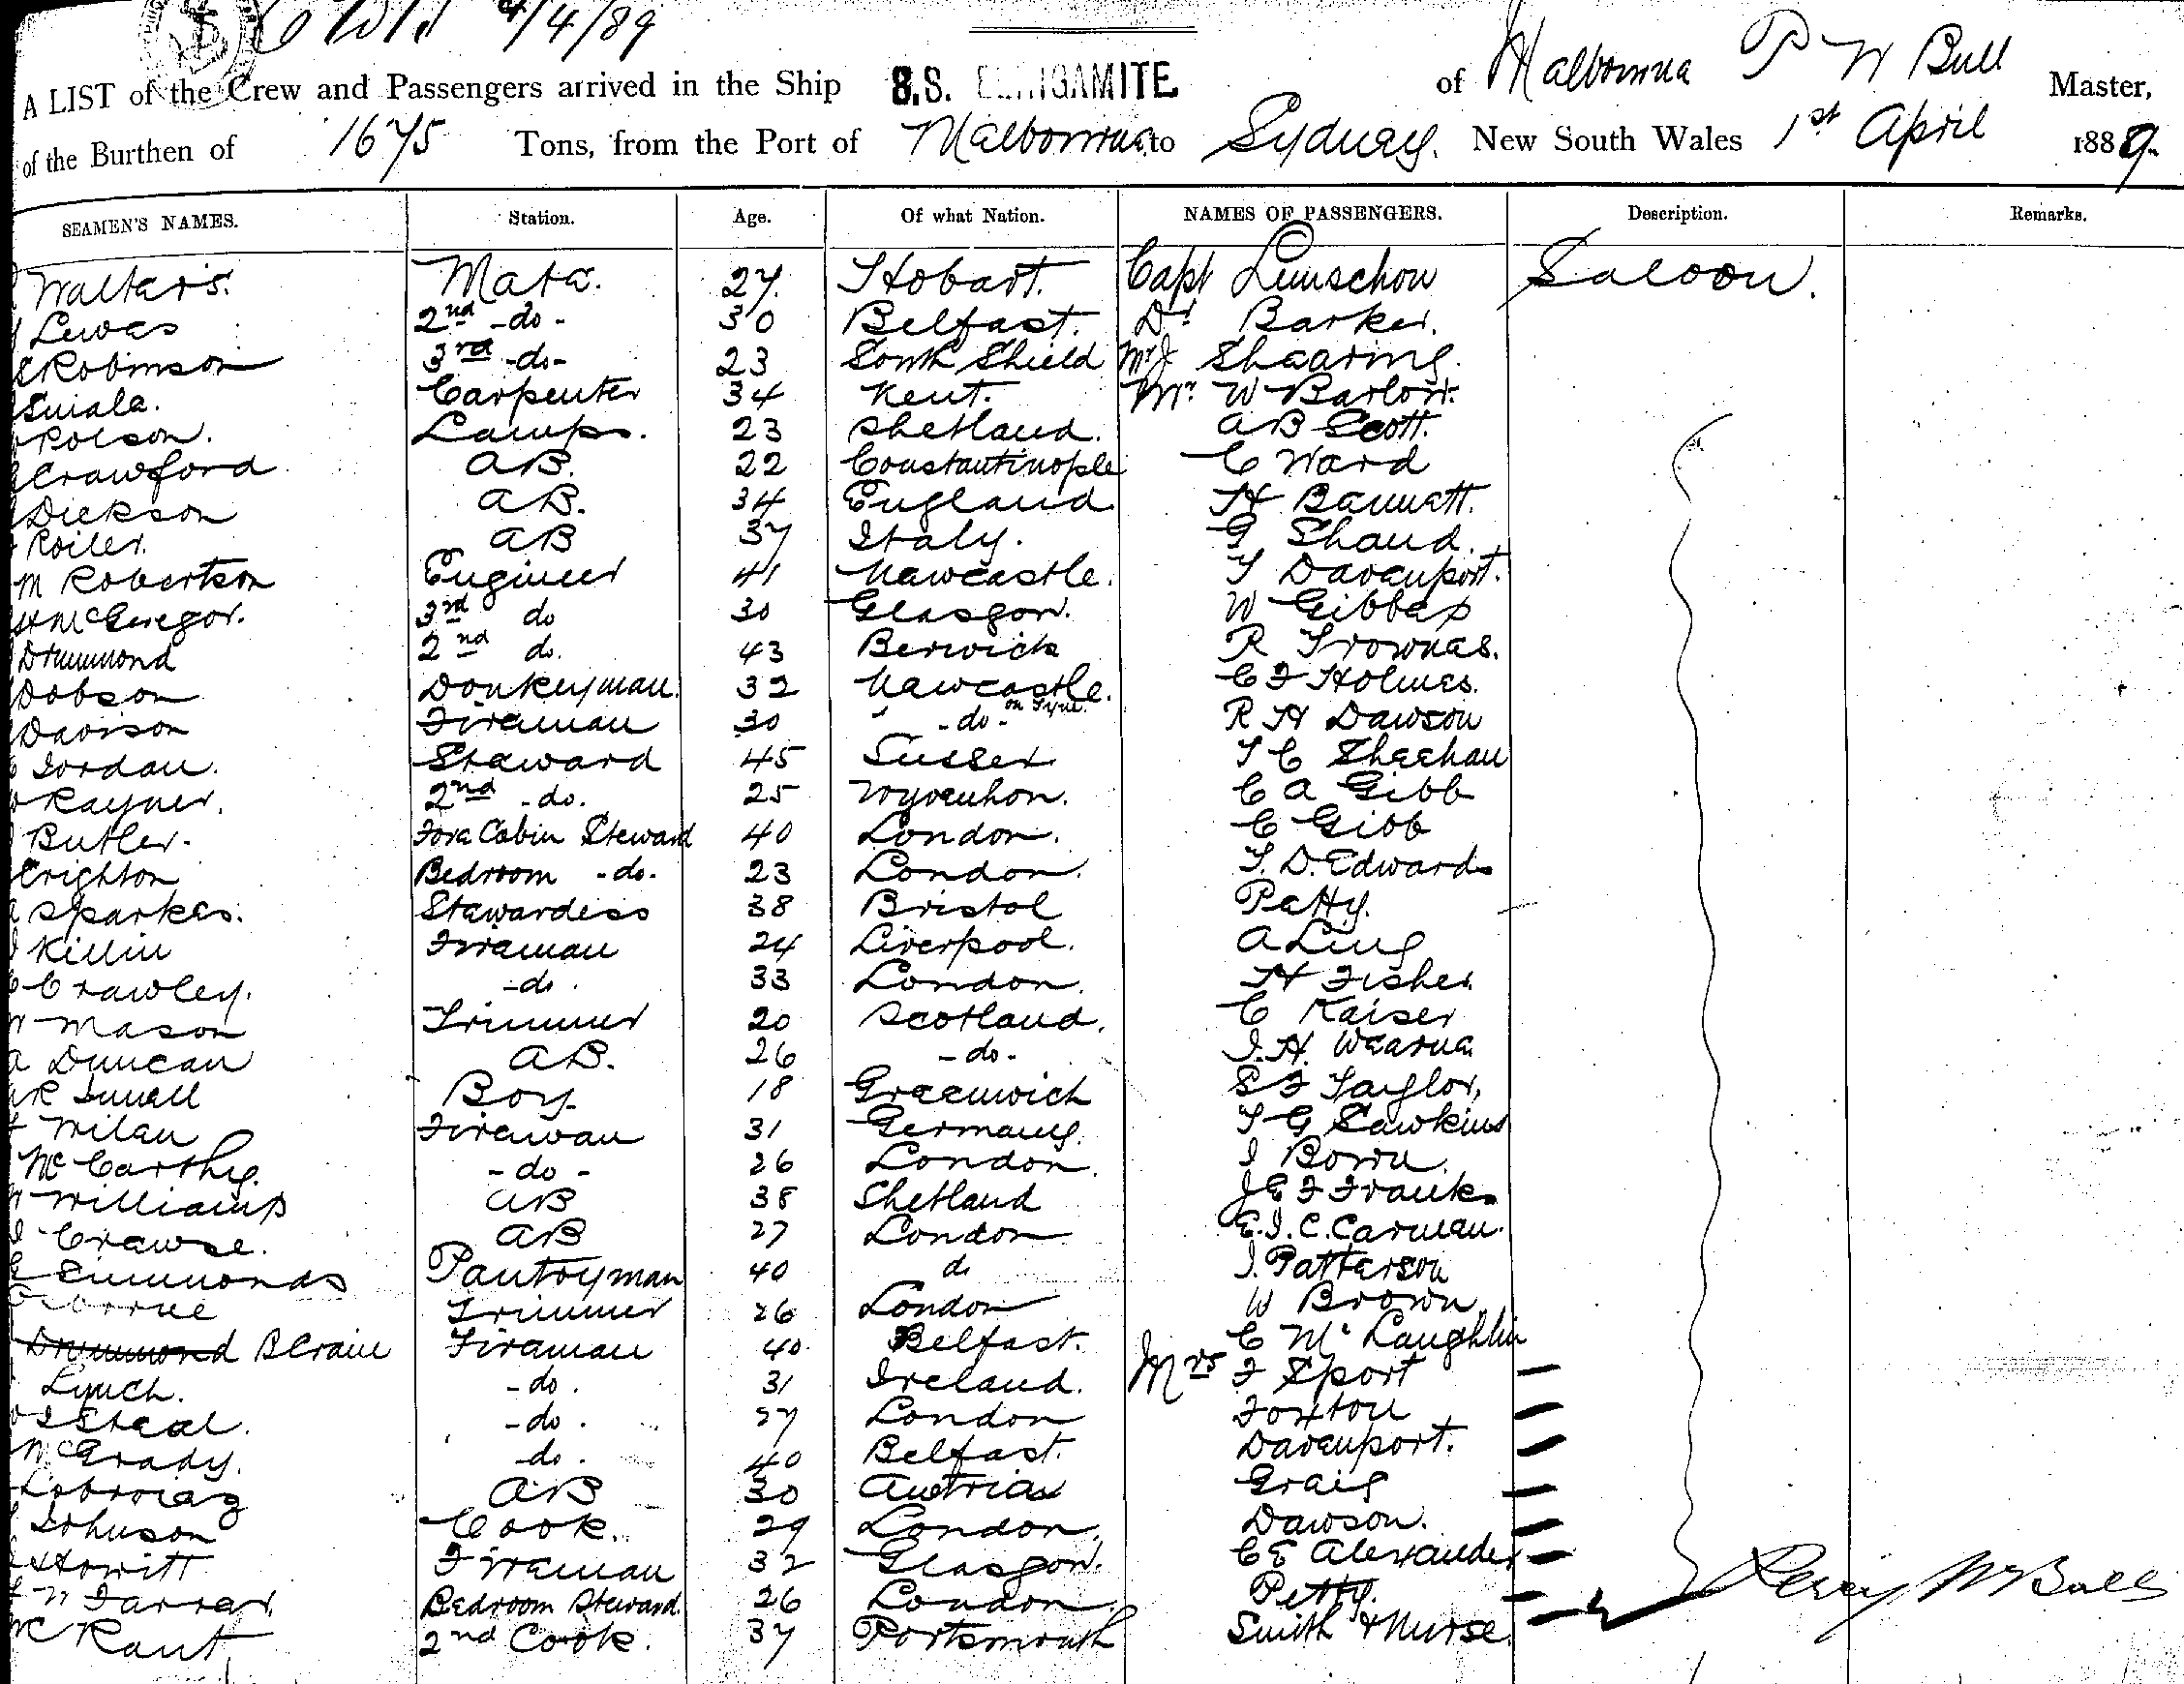 4/4/89
A LIST of the Crew and Passengers arrived in the Ship S.S. ELINGAMITE of Melbourne P W Bull Master,
of the Burthen of 1675 Tons, from the Port of Melbourne to Sydney. New South Wales 1st April 1889.
SEAMEN'S NAMES. Station. Age. Of what Nation. NAMES OF PASSENGERS. Description. Remarks.
Walters. Mate. 27. Hobart. Capt Saloon.
Lewes 2nd -do- 30 Belfast. Dr Barker.
Robinson 3rd -do- 23 South Shield Mr J Shearing.
Carpenter 34 Kent. Mr. W Barlow.
Polson. Lamps. 23 Shetland. A B Scott.
Crawford AB. 22 Constantinople C Ward
Dickson AB. 34 England H Bennett.
AB 37 Italy. G Shand.
M Robertson Engineer 41 Newcastle. T Davenport.
McGregor. 3rd do 30 Glasgow. W Gibbes
Drummond 2nd do. 43 Berwick R
Dobson Donkeyman. 32 Newcastle. on Tyne. C F Holmes.
Davison Fireman 30 -do- R H Dawson
Jordan. Steward 45 Sussex T C Sheehan
Rayner. 2nd -do. 25 C A Gibb
Butler. Fore Cabin Steward 40 London. C Gibb
Crighton Bedroom -do- 23 London. T. D. Edwards
Sparkes. Stewardess 38 Bristol Petty.
Killin Fireman 24 Liverpool. A Ling
Crawley. -do. 33 London. H Fisher
Mason Trimmer 20 Scotland. C Kaiser
Duncan AB. 26 -do- J. H. Wearne
Boy 18 Greenwich S F Taylor,
Milan Fireman 31 Germany. T G Sawkins
McCarthy. -do- 26 London. J Bown.
Williams AB 38 Shetland J E F Franks
Crawse. AB 27 London E. J. C. Carman.
Simmonds Pantryman 40 do J. Patterson
Trimmer 26 London W Brown
Drummond B Craine Fireman 40. Belfast. C McLaughlin
Lynch. -do. 31 Ireland. Mrs F Sport
Steal. -do. 27 London Foxton
McGrady. -do. 40 Belfast. Davenport.
AB 30 Austria Graig
Johnson Cook. 29 London. Dawson.
Howitt Fireman 32 Glasgow. C E Alexander
Farrar. Bedroom Steward. 26 London. Petty. Percy W Bull
Kant 2nd Cook. 37 Portsmouth Smith & Nurse.